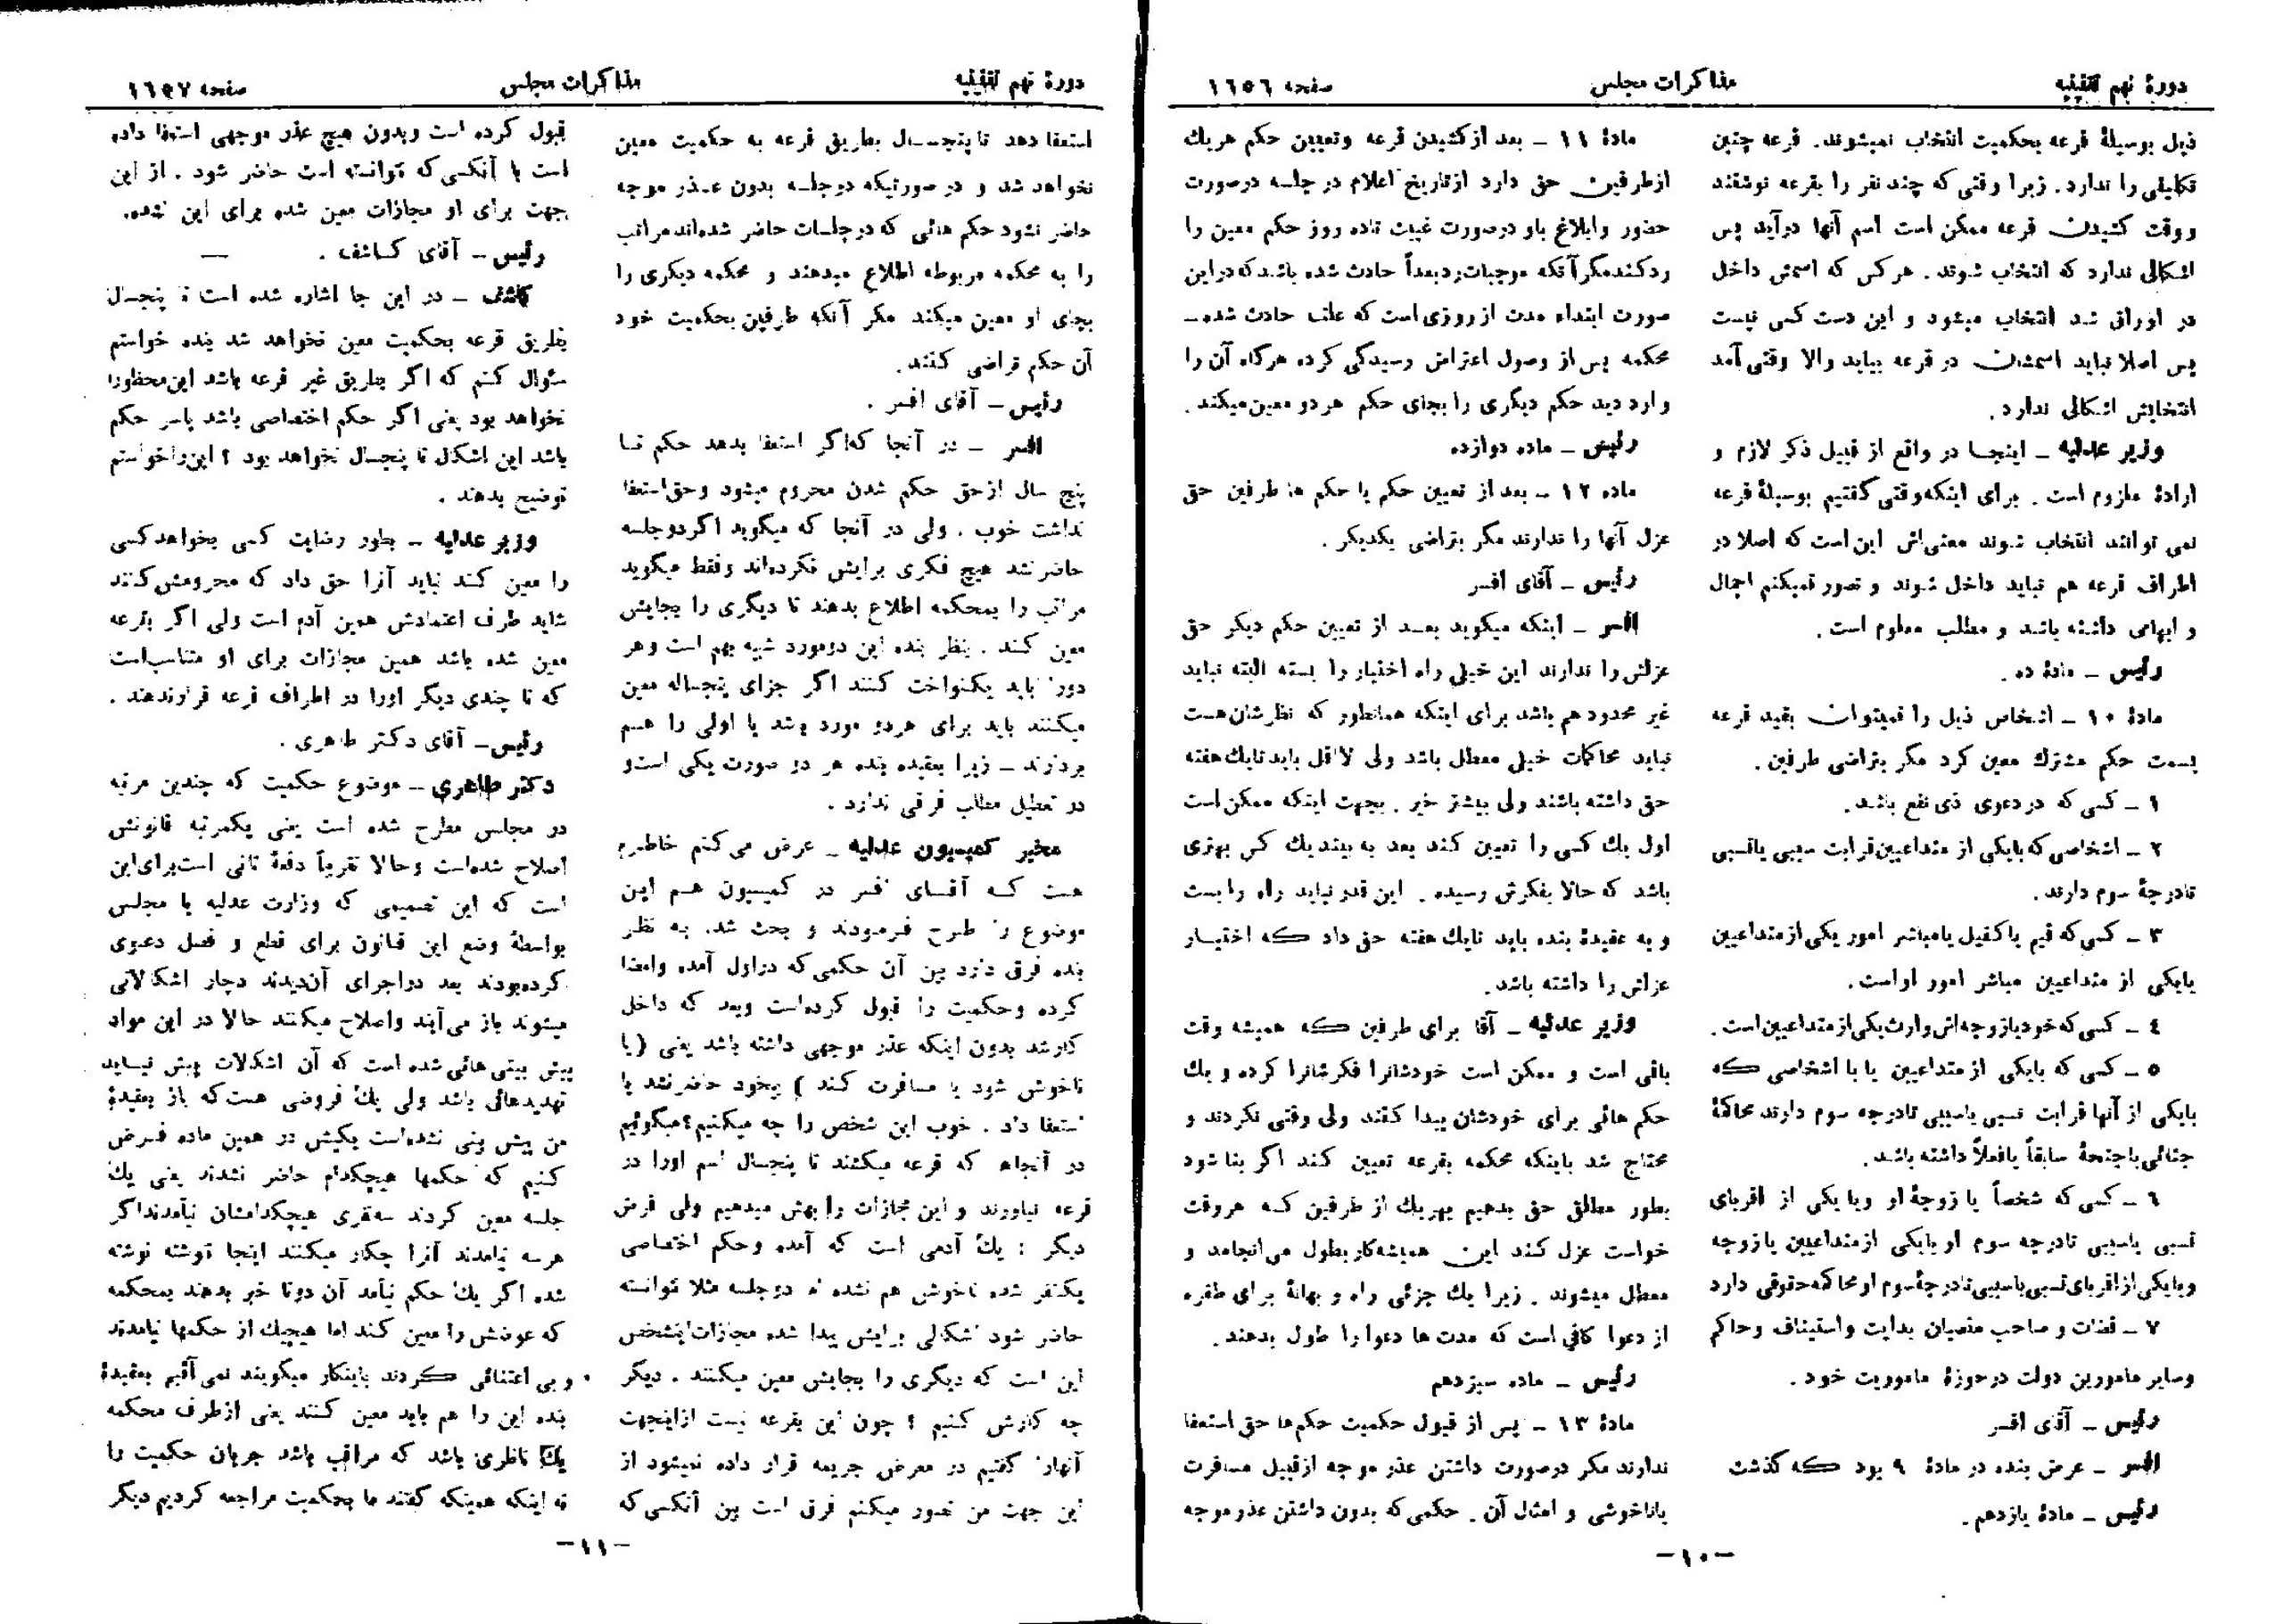 دورهٔ نهم تقنینیه
مذاکرات مجلس
صفحه ١٦٥٦
ذیل بوسیلهٔ قرعه بحکمیت انتخاب نمیشوند. قرعه چنین
تکلیفی را ندارد. زیرا وقتی که چند نفر را بقرعه نوشتند
و وقت کشیدن قرعه ممکن است اسم آنها درآید پس
اشکالی ندارد که انتخاب شوند. هرکس که اسمش داخل
در اوراق شد انتخاب میشود و این دست کسی نیست
پس اصلا نباید اسمشان در قرعه بیاید والا وقتی آمد
انتخابش اشکالی ندارد.
وزیر عدلیه ــ اینجا در واقع از قبیل ذکر لازم و
ارادهٔ ملزوم است. برای اینکه وقتی گفتیم بوسیلهٔ قرعه
نمی توانند انتخاب شوند معنی‌اش این است که اصلا در
اطراف قرعه هم نباید داخل شوند و تصور نمیکنم اجمال
و ابهامی داشته باشد و مطلب معلوم است.
رئیس ــ مادهٔ ده.
مادهٔ ١٠ ــ اشخاص ذیل را نمیتوان بقید قرعه
بسمت حکم مشترك معین کرد مگر بتراضی طرفین.
١ ــ کسی که در دعوی ذی نفع باشد.
٢ ــ اشخاصی که بایکی از متداعیین قرابت سببی یا نسبی
تادرجهٔ سوم دارند.
٣ ــ کسی که قیم یا کفیل یا مباشر امور یکی از متداعیین
یا یکی از متداعیین مباشر امور او است.
٤ ــ کسی که خود یا زوجه‌اش وارث یکی از متداعیین است.
٥ ــ کسی که بایکی از متداعیین یا با اشخاصی که
بایکی از آنها قرابت نسبی یا سببی تا درجه سوم دارند محاکمهٔ
جنائی یا جنحهٔ سابقاً یا فعلاً داشته باشد.
٦ ــ کسی که شخصاً یا زوجهٔ او ویا یکی از اقربای
نسبی یا سببی تا درجه سوم او بایکی از متداعیین یا زوجه
و یا یکی از اقربای نسبی یا سببی تا درجهٔ سوم او محاکمه حقوقی دارد
٧ ــ قضات و صاحب منصبان بدایت و استیناف و حاکم
و سایر مامورین دولت در حوزهٔ ماموریت خود.
رئیس ــ آقای افسر
افسر ــ عرض بنده در مادهٔ ٩ بود که گذشت
رئیس ــ مادهٔ یازدهم.
مادهٔ ١١ ــ بعد از کشیدن قرعه و تعیین حکم هریك
از طرفین حق دارد از تاریخ اعلام در جلسه در صورت
حضور و ابلاغ باو در صورت غیبت تا ده روز حکم معین را
رد کند مگر آنکه موجبات رد بعداً حادث شده باشد که در این
صورت ابتداء مدت از روزی است که علت حادث شده ــ
محکمه پس از وصول اعتراض رسیدگی کرده هرگاه آن را
وارد دید حکم دیگری را بجای حکم هر دو معین میکند.
رئیس ــ ماده دوازده
ماده ١٢ ــ بعد از تعیین حکم یا حکم ها طرفین حق
عزل آنها را ندارند مگر بتراضی یکدیگر.
رئیس ــ آقای افسر
افسر ــ اینکه میگوید بعد از تعیین حکم دیگر حق
عزلش را ندارند این خیلی راه اختیار را بسته البته نباید
غیر محدود هم باشد برای اینکه همانطور که نظرشان هست
نباید محاکمات خیلی معطل باشد ولی لااقل باید تا یك هفته
حق داشته باشند ولی بیشتر خیر. بجهت اینکه ممکن است
اول یك کسی را تعیین کند بعد به بیند یك کس بهتری
باشد که حالا بفکرش رسیده. این قدر نباید راه را بست
و به عقیدهٔ بنده باید تا یك هفته حق داد که اختیار
عزلش را داشته باشد.
وزیر عدلیه ــ آقا برای طرفین که همیشه وقت
باقی است و ممکن است خودشانرا فکرشانرا کرده و یك
حکم هائی برای خودشان پیدا کنند ولی وقتی نکردند و
محتاج شد باینکه محکمه بقرعه تعیین کند اگر بنا شود
بطور مطلق حق بدهیم بهریك از طرفین که هر وقت
خواست عزل کند این همیشه کار بطول می انجامد و
معطل میشوند. زیرا یك جزئی راه و بهانهٔ برای طفره
از دعوا کافی است که مدت ها دعوا را طول بدهند.
رئیس ــ ماده سیزدهم
مادهٔ ١٣ ــ پس از قبول حکمیت حکم‌ها حق استعفا
ندارند مگر در صورت داشتن عذر موجه از قبیل مسافرت
یا ناخوشی و امثال آن. حکمی که بدون داشتن عذر موجه
ــ ١٠ ــ
دورهٔ نهم تقنینیه
مذاکرات مجلس
صفحه ١٦٥٧
استعفا دهد تا پنجسال بطریق قرعه به حکمیت معین
نخواهد شد و در صورتیکه دو جلسه بدون عذر موجه
حاضر نشود حکم هائی که در جلسات حاضر شده‌اند مراتب
را به محکمه مربوطه اطلاع میدهند و محکمه دیگری را
بجای او معین میکند مگر آنکه طرفین بحکمیت خود
آن حکم تراضی کنند.
رئیس ــ آقای افسر.
افسر ــ در آنجا که اگر استعفا بدهد حکم تا
پنج سال از حق حکم شدن محروم میشود و حق استعفا
نداشت خوب. ولی در آنجا که میگوید اگر دو جلسه
حاضر نشد هیچ فکری برایش نکرده‌اند و فقط میگوید
مراتب را بمحکمه اطلاع بدهند تا دیگری را بجایش
معین کند. بنظر بنده این دو مورد شبیه بهم است و هر
دو را باید یکنواخت کنند اگر جزای پنجساله معین
میکنند باید برای هر دو مورد باشد یا اولی را هم
بردارند ــ زیرا بعقیده بنده هر دو صورت یکی است و
در تعطیل مطلب فرقی ندارد.
مخبر کمیسیون عدلیه ــ عرض می کنم خاطرم
هست که آقای افسر در کمیسیون هم این
موضوع را طرح فرمودند و بحث شد. به نظر
بنده فرق دارد بین آن حکمی که در اول آمده و امضا
کرده و حکمیت را قبول کرده‌است و بعد که داخل
کار شد بدون اینکه عذر موجهی داشته باشد یعنی (یا
ناخوش شود یا مسافرت کند) بیخود حاضر نشد یا
استعفا داد. خوب این شخص را چه میکنیم؟ میگوئیم
در آنجاها که قرعه میکشند تا پنجسال اسم او را در
قرعه نیاورند و این مجازات را بهش میدهیم ولی فرض
دیگر: یك آدمی است که آمده و حکم اختصاصی
یکنفر شده ناخوش هم نشده دو جلسه مثلا توانسته
حاضر شود اشکالی برایش پیدا شده مجازات اینشخص
این است که دیگری را بجایش معین میکنند. دیگر
چه کارش کنیم؟ چون این بقرعه نیست از اینجهت
آنها را گفتیم در معرض جریمه قرار داده نمیشود از
این جهت من تصور میکنم فرق است بین آنکسی که
قبول کرده است و بدون هیچ عذر موجهی استعفا داده
است با آنکسی که توانسته است حاضر شود. از این
جهت برای او مجازات معین شده برای این نشده.
رئیس ــ آقای کاشف.
کاشف ــ در این جا اشاره شده است تا پنجسال
بطریق قرعه بحکمیت معین نخواهد شد بنده خواستم
سئوال کنم که اگر بطریق غیر قرعه باشد این محظور را
نخواهد بود یعنی اگر حکم اختصاصی باشد یا سر حکم
باشد این اشکال تا پنجسال نخواهد بود؟ این را خواستم
توضیح بدهند.
وزیر عدلیه ــ بطور رضایت کسی بخواهد کسی
را معین کند نباید آنرا حق داد که محرومش کنند
شاید طرف اعتمادش همین آدم است ولی اگر بقرعه
معین شده باشد همین مجازات برای او متناسب است
که تا چندی دیگر او را در اطراف قرعه قرار ندهند.
رئیس ــ آقای دکتر طاهری.
دکتر طاهری ــ موضوع حکمیت که چندین مرتبه
در مجلس مطرح شده است یعنی یکمرتبه قانونش
اصلاح شده‌است و حالا تقریباً دفعهٔ ثانی است برای این
است که این تصمیمی که وزارت عدلیه یا مجلس
بواسطهٔ وضع این قانون برای قطع و فصل دعوی
کرده بودند بعد در اجرای آن دیدند دچار اشکالاتی
میشوند باز می آیند و اصلاح میکنند حالا در این مواد
پیش بینی هائی شده است که آن اشکالات پیش نیاید
تهدیدهائی باشد ولی یك فروضی هست که باز بعقیدهٔ
من پیش بینی نشده‌است یکیش در همین ماده فرض
کنیم که حکمها هیچکدام حاضر نشدند یعنی یك
جلسه معین کردند سه نفری هیچکدامشان نیامدند اگر
هر سه نیامدند آنرا چکار میکنند اینجا نوشته
شده اگر یك حکم نیامد آن دو تا خبر بدهند بمحکمه
که عوضش را معین کند اما هیچیك از حکمها نیامدند
و بی اعتنائی کردند باینکار میگویند نمی آئیم بعقیدهٔ
بنده این را هم باید معین کنند یعنی از طرف محکمه
یك ناظری باشد که مراقب باشد جریان حکمیت را
نه اینکه همینکه گفتند ما بحکمیت مراجعه کردیم دیگر
ــ ١١ ــ